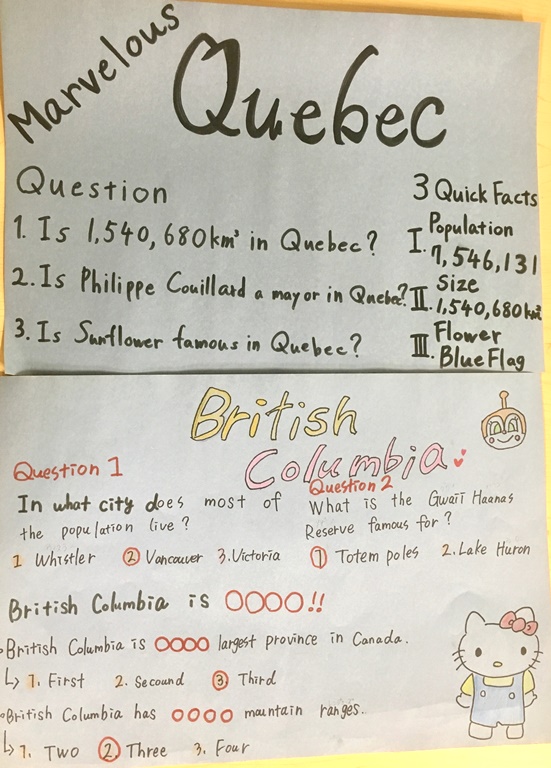 Marvelous
Quebec
Question
1. Is 1,540,680km² in Quebec?
2. Is Philippe Couillard a mayor in Quebec?
3. Is Sunflower famous in Quebec?
3 Quick Facts
I. Population
7,546,131
II. Size
1,540,680km²
III. Flower
Blue Flag
British
Columbia
Question 1
In what city does most of
the population live?
1 Whistler ② Vancouver 3. Victoria
Question 2
What is the Gwaii Haanas
Reserve famous for?
① Totem poles 2. Lake Huron
British Columbia is OOOO!!
• British Columbia is OOOO largest province in Canada.
↳ 1. First 2. Secound ③ Third
• British Columbia has OOOO mauntain ranges.
↳ 1. Two ② Three 3. Four